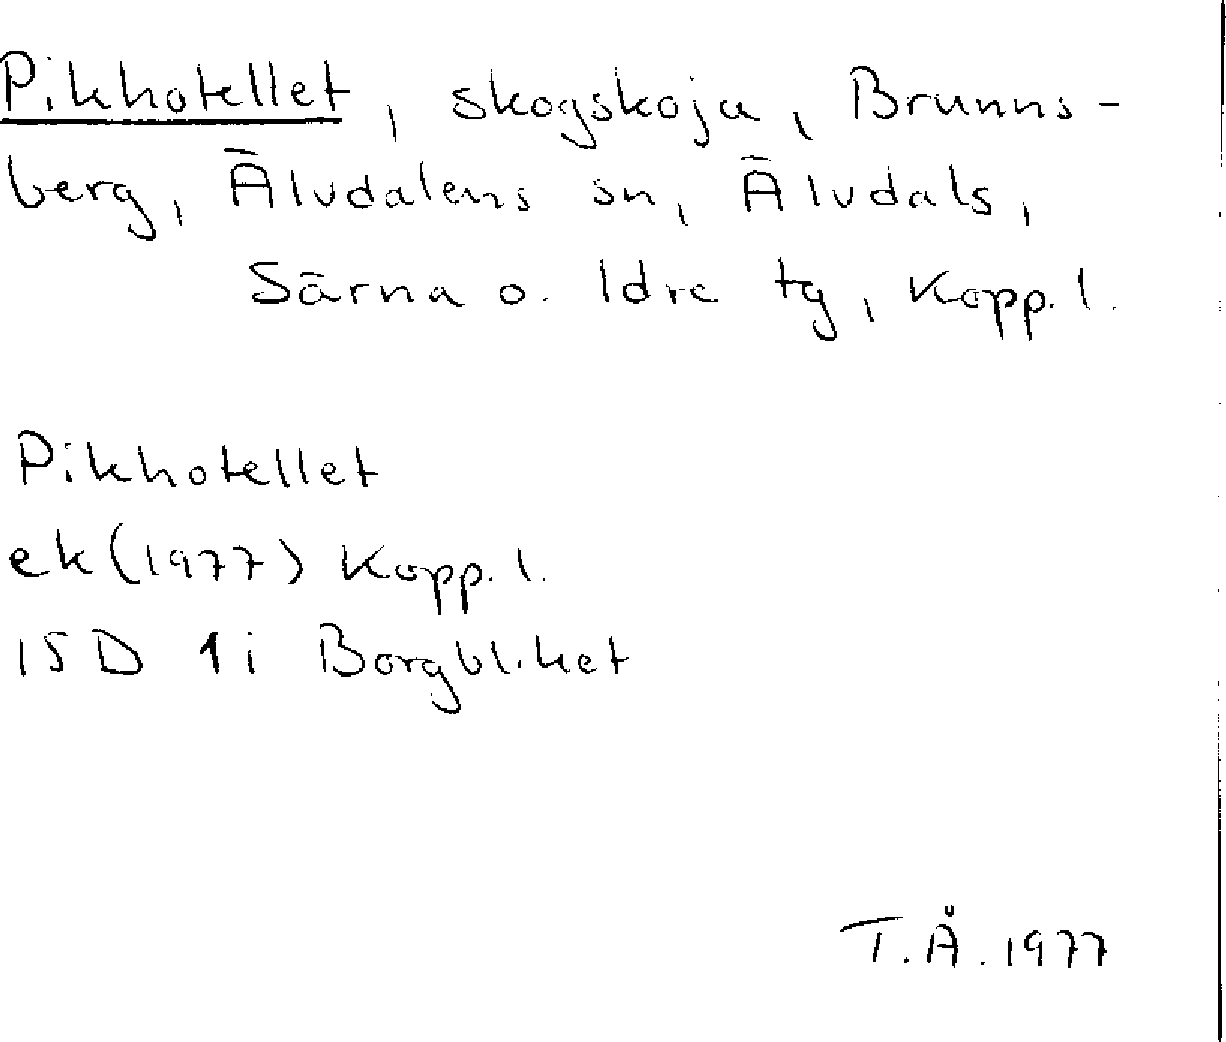 Pikhotellet, skogskoja, Brunns-
berg, Älvdalens sn, Älvdals,
Särna o. Idre tg, Kopp. l.
Pikhotellet
ek (1977) Kopp. l.
15 D 1i Borgbliket
T. Å. 1977